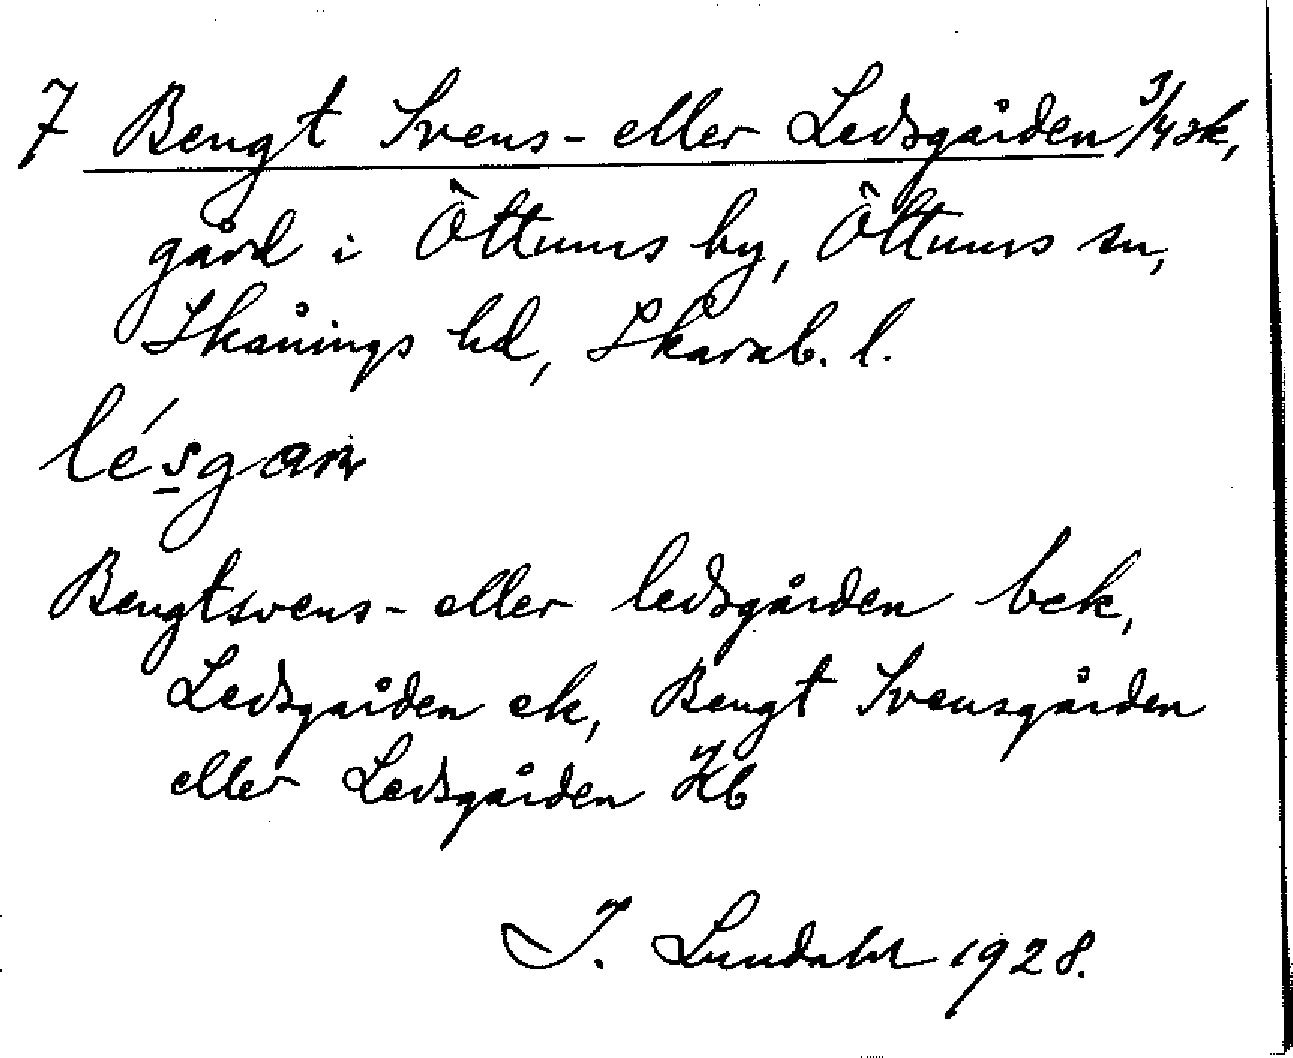 7 Bengt Svens- eller Ledsgården 3/4 sk,
gård i Öttums by, Öttums sn,
Skånings hd, Skarab. l.
lésgaṛn
Bengtsvens- eller ledsgården bek,
Ledsgården ek, Bengt Svensgården
eller Ledsgården Hb
I. Lundahl 1928.